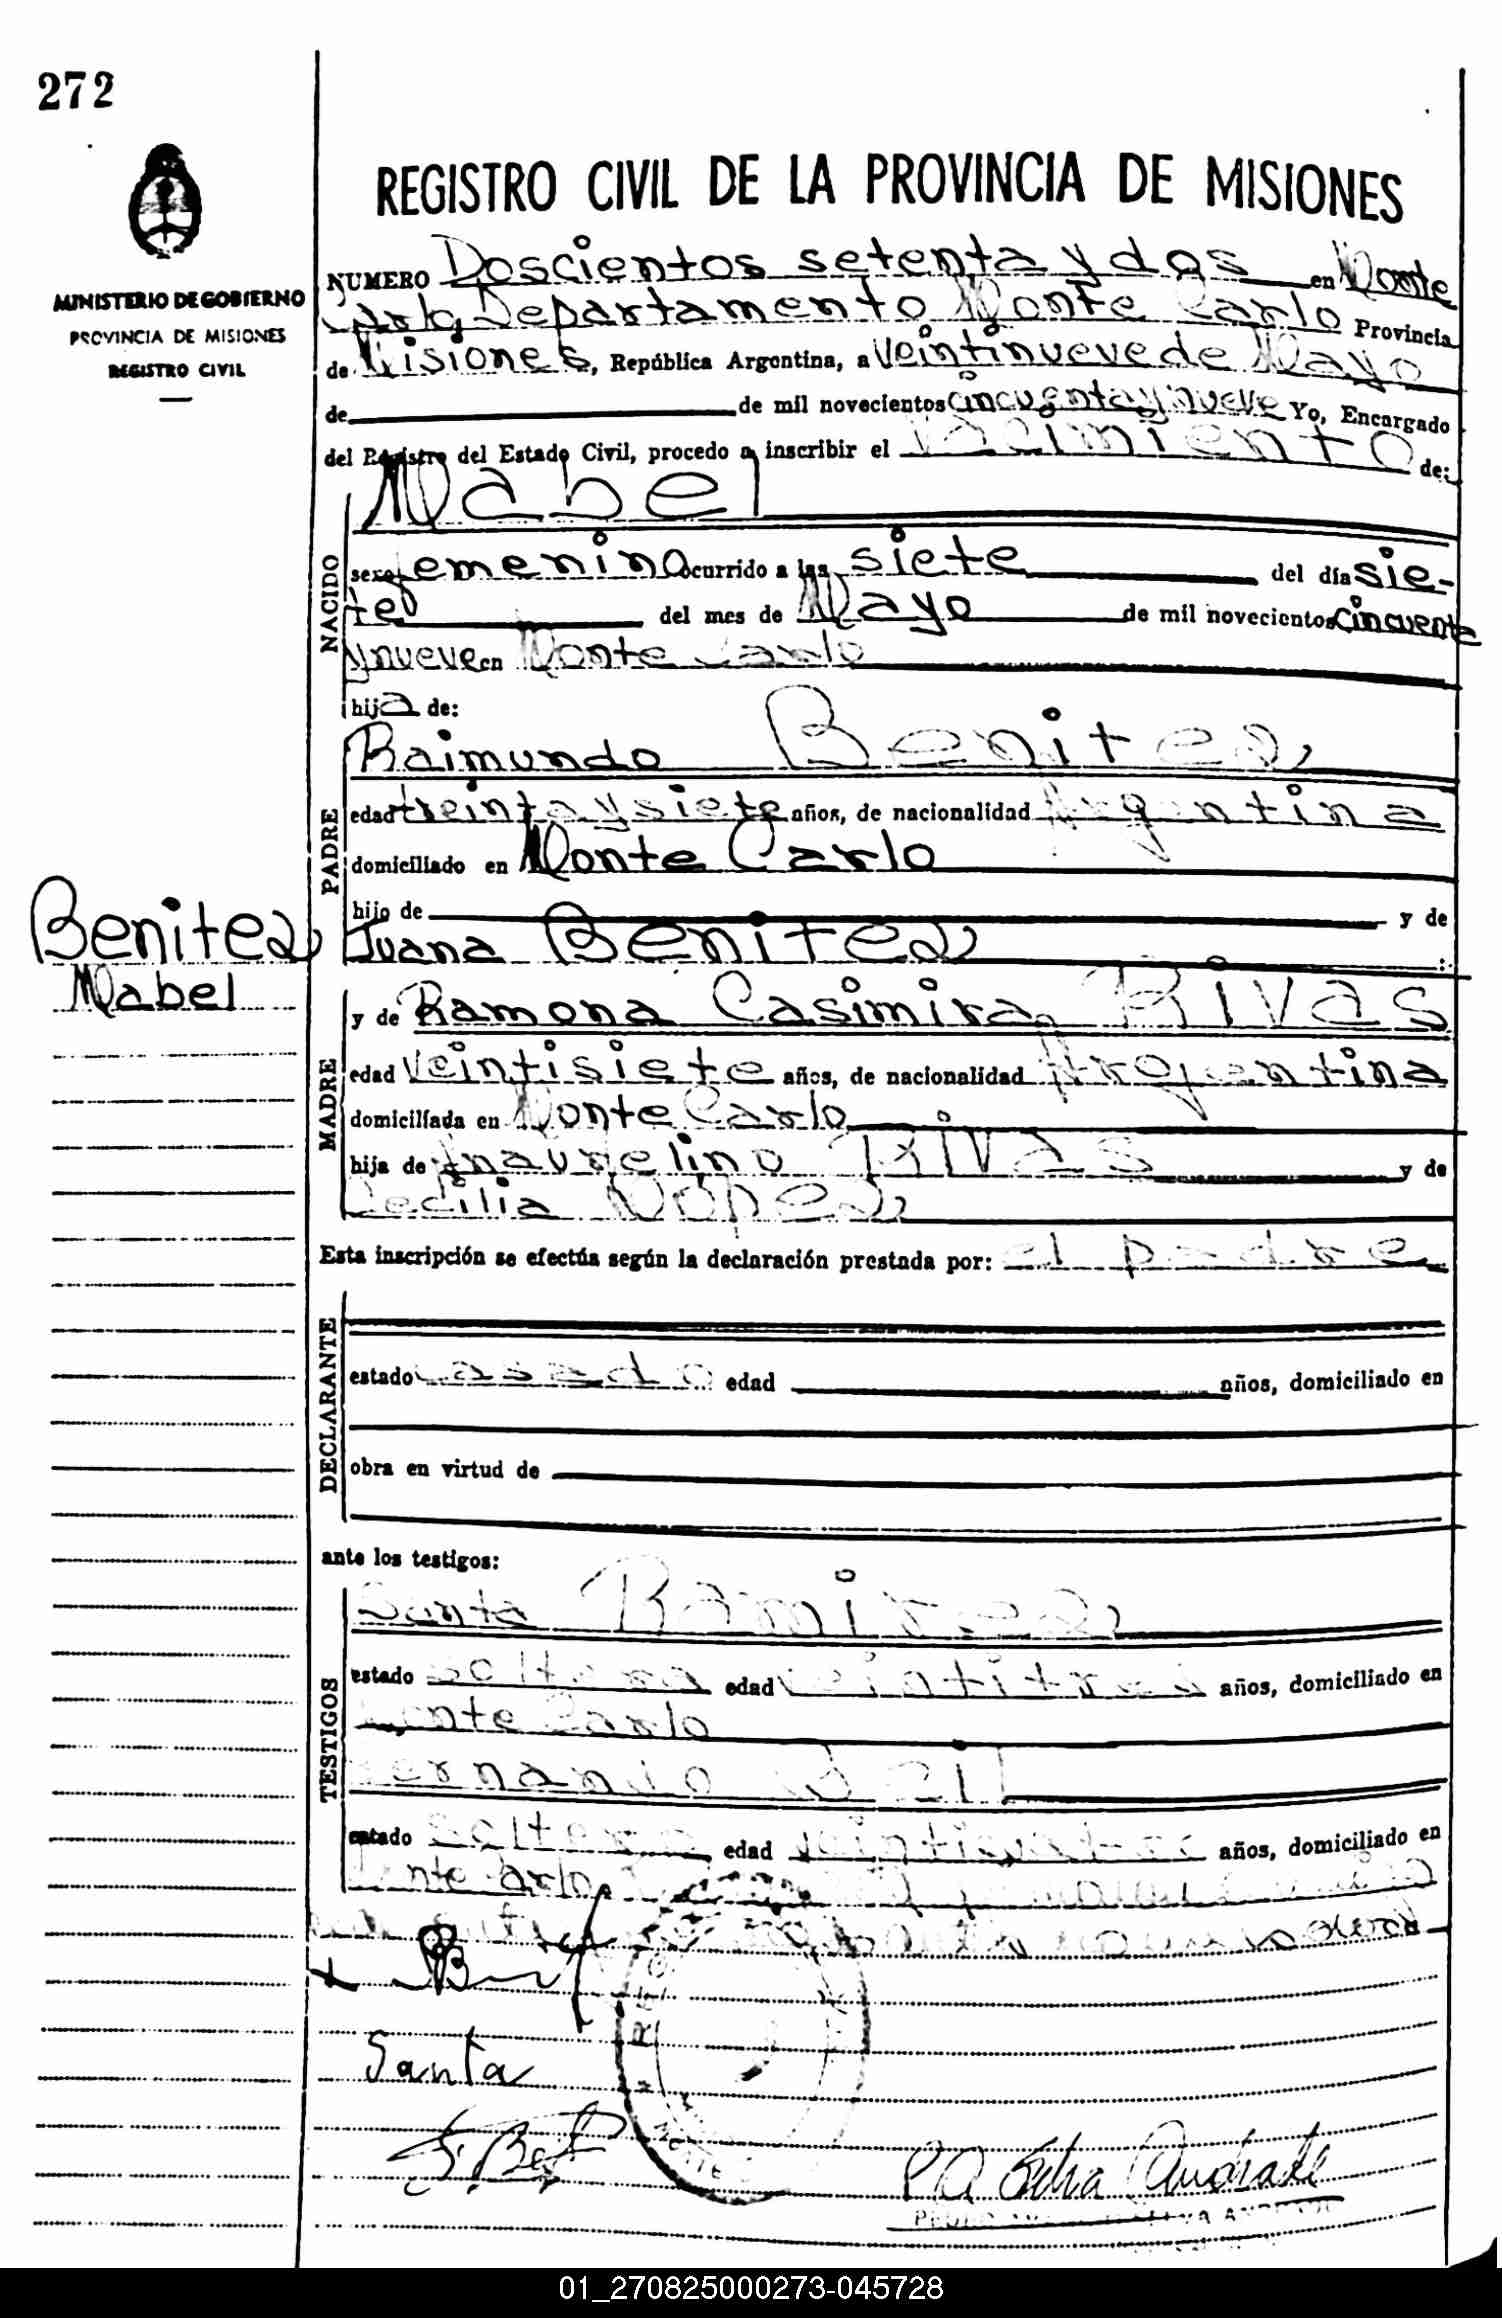 272
MINISTERIO DE GOBIERNO
PROVINCIA DE MISIONES
REGISTRO CIVIL
REGISTRO CIVIL DE LA PROVINCIA DE MISIONES
NUMERO Doscientos setenta y dos en Monte
Carlo, Departamento Monte Carlo Provincia
de Misiones, República Argentina, a Veintinueve de Mayo
de de mil novecientos cincuenta y nueve Yo, Encargado
del Registro del Estado Civil, procedo a inscribir el Nacimiento de:
Mabel
NACIDO
sexo femenino ocurrido a las siete del día sie-
te del mes de Mayo de mil novecientos cincuenta
y nueve en Monte Carlo
hija de:
Raimundo Benitez
PADRE
edad treinta y siete años, de nacionalidad Argentina
domiciliado en Monte Carlo
hijo de y de
Juana Benitez
Benitez
Mabel
y de Ramona Casimira Rivas
MADRE
edad veintisiete años, de nacionalidad Argentina
domiciliada en Monte Carlo
hija de Rivas y de
Cecilia
Esta inscripción se efectúa según la declaración prestada por: el padre
DECLARANTE
estado casado edad años, domiciliado en
obra en virtud de
ante los testigos:
Santa Ramirez
TESTIGOS
estado soltera edad veintitres años, domiciliado en
Monte Carlo
estado soltero edad años, domiciliado en
Monte Carlo
Santa
01_270825000273-045728